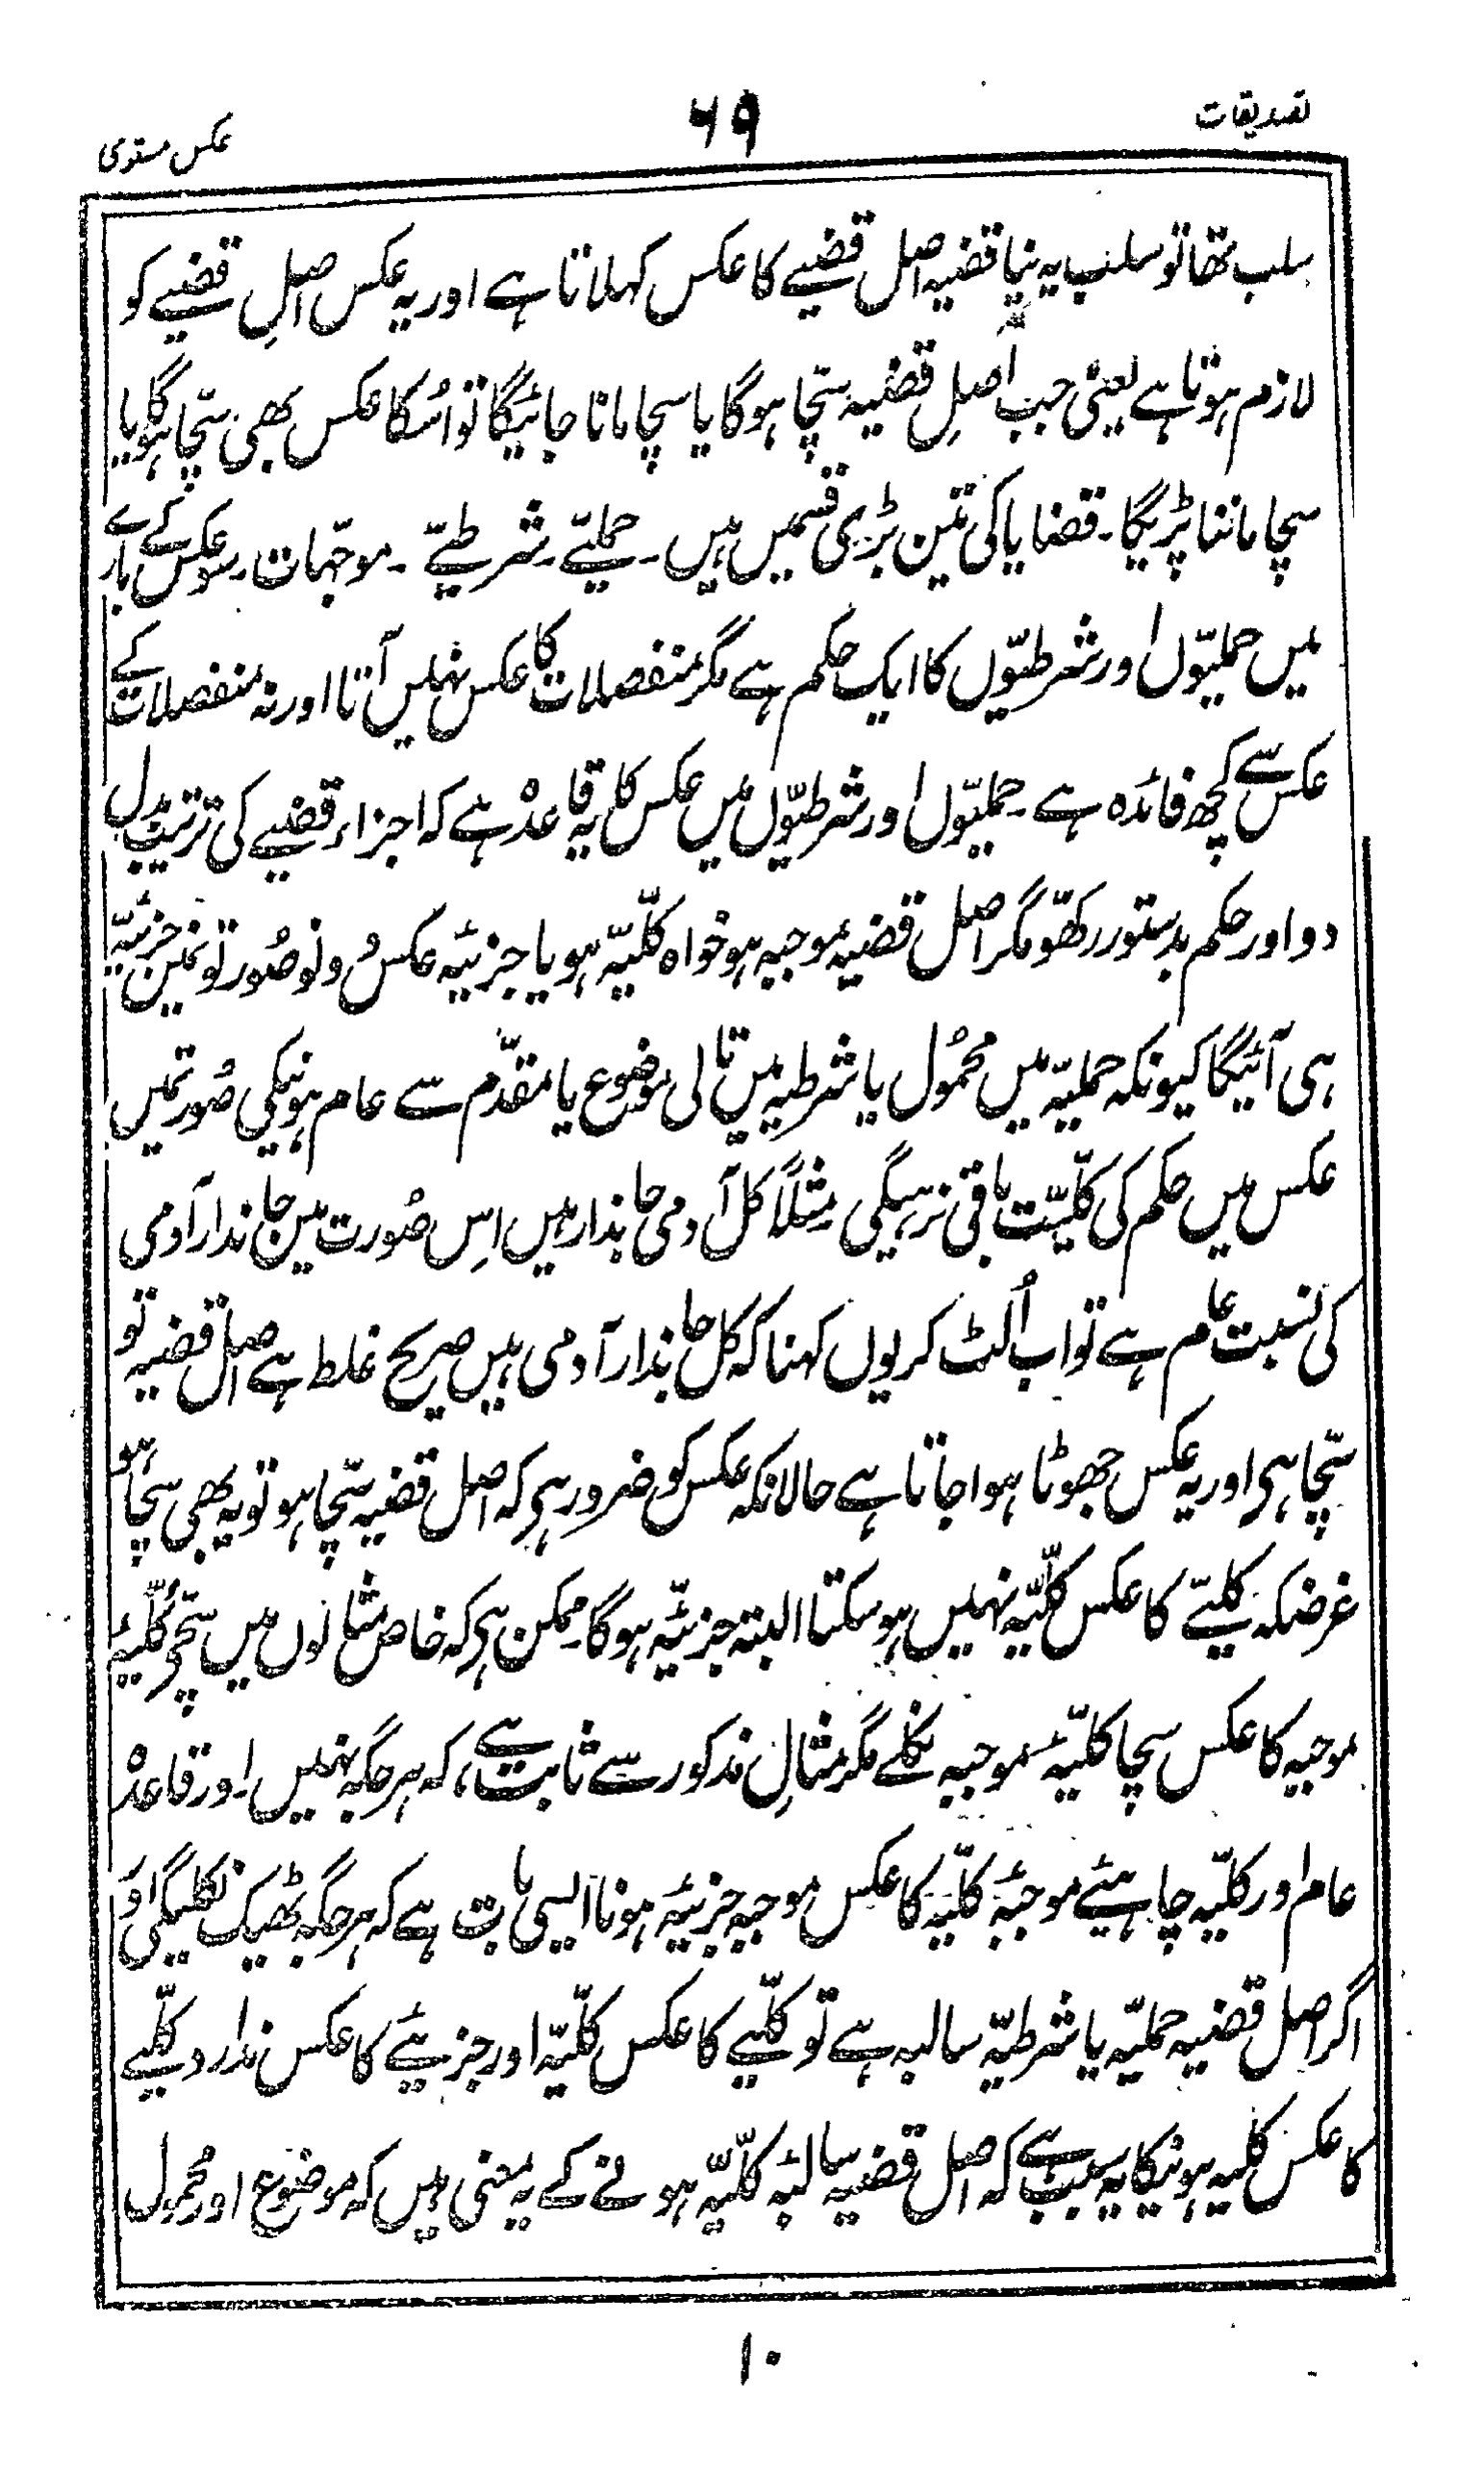 تصدیقات
۶۹
عکس مستوی
سلب تھا تو سلب یہ نیا قضیہ اصل قضیے کا عکس کہلاتا ہے اور یہ عکس اصلِ قضیے کو
لازم ہوتا ہے یعنی جب اصلِ قضیہ سچّا ہوگا یا سچا مانا جائیگا تو اُسکا عکس بھی سچّا ہوگا یا
سچا ماننا پڑیگا۔ قضایا کی تین بڑی قسمیں ہیں۔ حملیّے۔ شرطیّے۔ موجّہات۔ سو عکس کے بارے
میں حملیّوں اور شرطیّوں کا ایک حکم ہے مگر منفصلات کا عکس نہیں آتا اور نہ منفصلات کے
عکس سے کچھ فائدہ ہے۔ حملیّوں اور شرطیّوں میں عکس کا یہ قاعدہ ہے کہ اجزاء قضیے کی ترتیب بدل
دو اور حکم بدستور رکھّو مگر اصل قضیہ موجبہ ہو خواہ کلّیّہ ہو یا جزئیہ عکس دونو صُورتونمین جزئیّہ
ہی آئیگا کیونکہ حملیّہ میں محمُول یا شرطیہ میں تالی موضوع یا مقدّم سے عام ہونیکی صُورتمیں
عکس میں حکم کی کلّیّت باقی نرہیگی مثلاً کل آدمی جاندار ہیں اِس صُورت مین جاندار آدمی
کی نسبت عام ہے تو اب اُلٹ کر یوں کہنا کہ کل جاندار آدمی ہیں صریح غلط ہے اصل قضیہ تو
سچّا ہی اور یہ عکس جھوٹا ہوا جاتا ہے حالانکہ عکس کو ضرور ہی کہ اصل قضیہ سچّا ہو تو یہ بھی سچّا ہو
غرضکہ کلیّے کا عکس کلّیّہ نہیں ہو سکتا البتہ جزئیّہ ہوگا ممکن ہی کہ خاص مثالوں میں سچّی کُلّیّہ
موجبہ کا عکس سچا کلیّہ موجبہ نکلے مگر مثالِ مذکور سے ثابت ہے، کہ ہر جگہ نہیں۔ اور قاعدہ
عام اور کلیّہ چاہیئے موجبۂ کلّیہ کا عکس موجبہ جزئیّہ ہونا ایسی بات ہے کہ ہر جگہ ٹھیک نکلیگی اور
اگر اصل قضیہ حملیّہ یا شرطیّہ سالبہ ہے تو کلّیے کا عکس کلّیّہ اور جزئیے کا عکس ندارد کلّیے
کا عکس کلیہ ہونیکا یہ سبب ہے کہ اصل قضیہ سالبہ کلّیّہ ہونے کے یہ معنی ہیں کہ موضوع اور محمول
۱۰